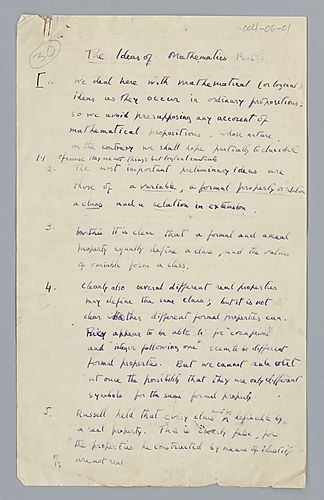 004-06-01
The Ideas of Mathematics Part I
[1. We deal here with mathematical (or logical)
ideas as they occur in ordinary propositions;
so we avoid presupposing any account of
mathematical propositions, whose nature
on the contrary we shall hope partially to elucidate
Of course they are not things but logical contents
2. The most important preliminary ideas are
those of a variable, a formal property or relation
a class and a relation in extension.
3. it is clear that a formal and a real
property equally define a class, and the values
of variable form a class.
4. Clearly also several different real properties
may define the same class; but it is not
clear whether different formal properties can.
They appear to be able to for "even prime"
and "integer following one" seem to be different
formal properties. But we cannot rule out
at once the possibility that they are only different
symbols for the same formal property
5. Russell held that every class is definable by
a real property. This is clearly false, for
the properties he constructed by means of identity
are not real